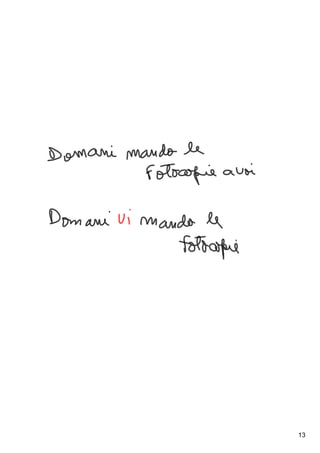 Domani mando le
Fotocopie a voi
Domani vi mando le
fotocopie
13